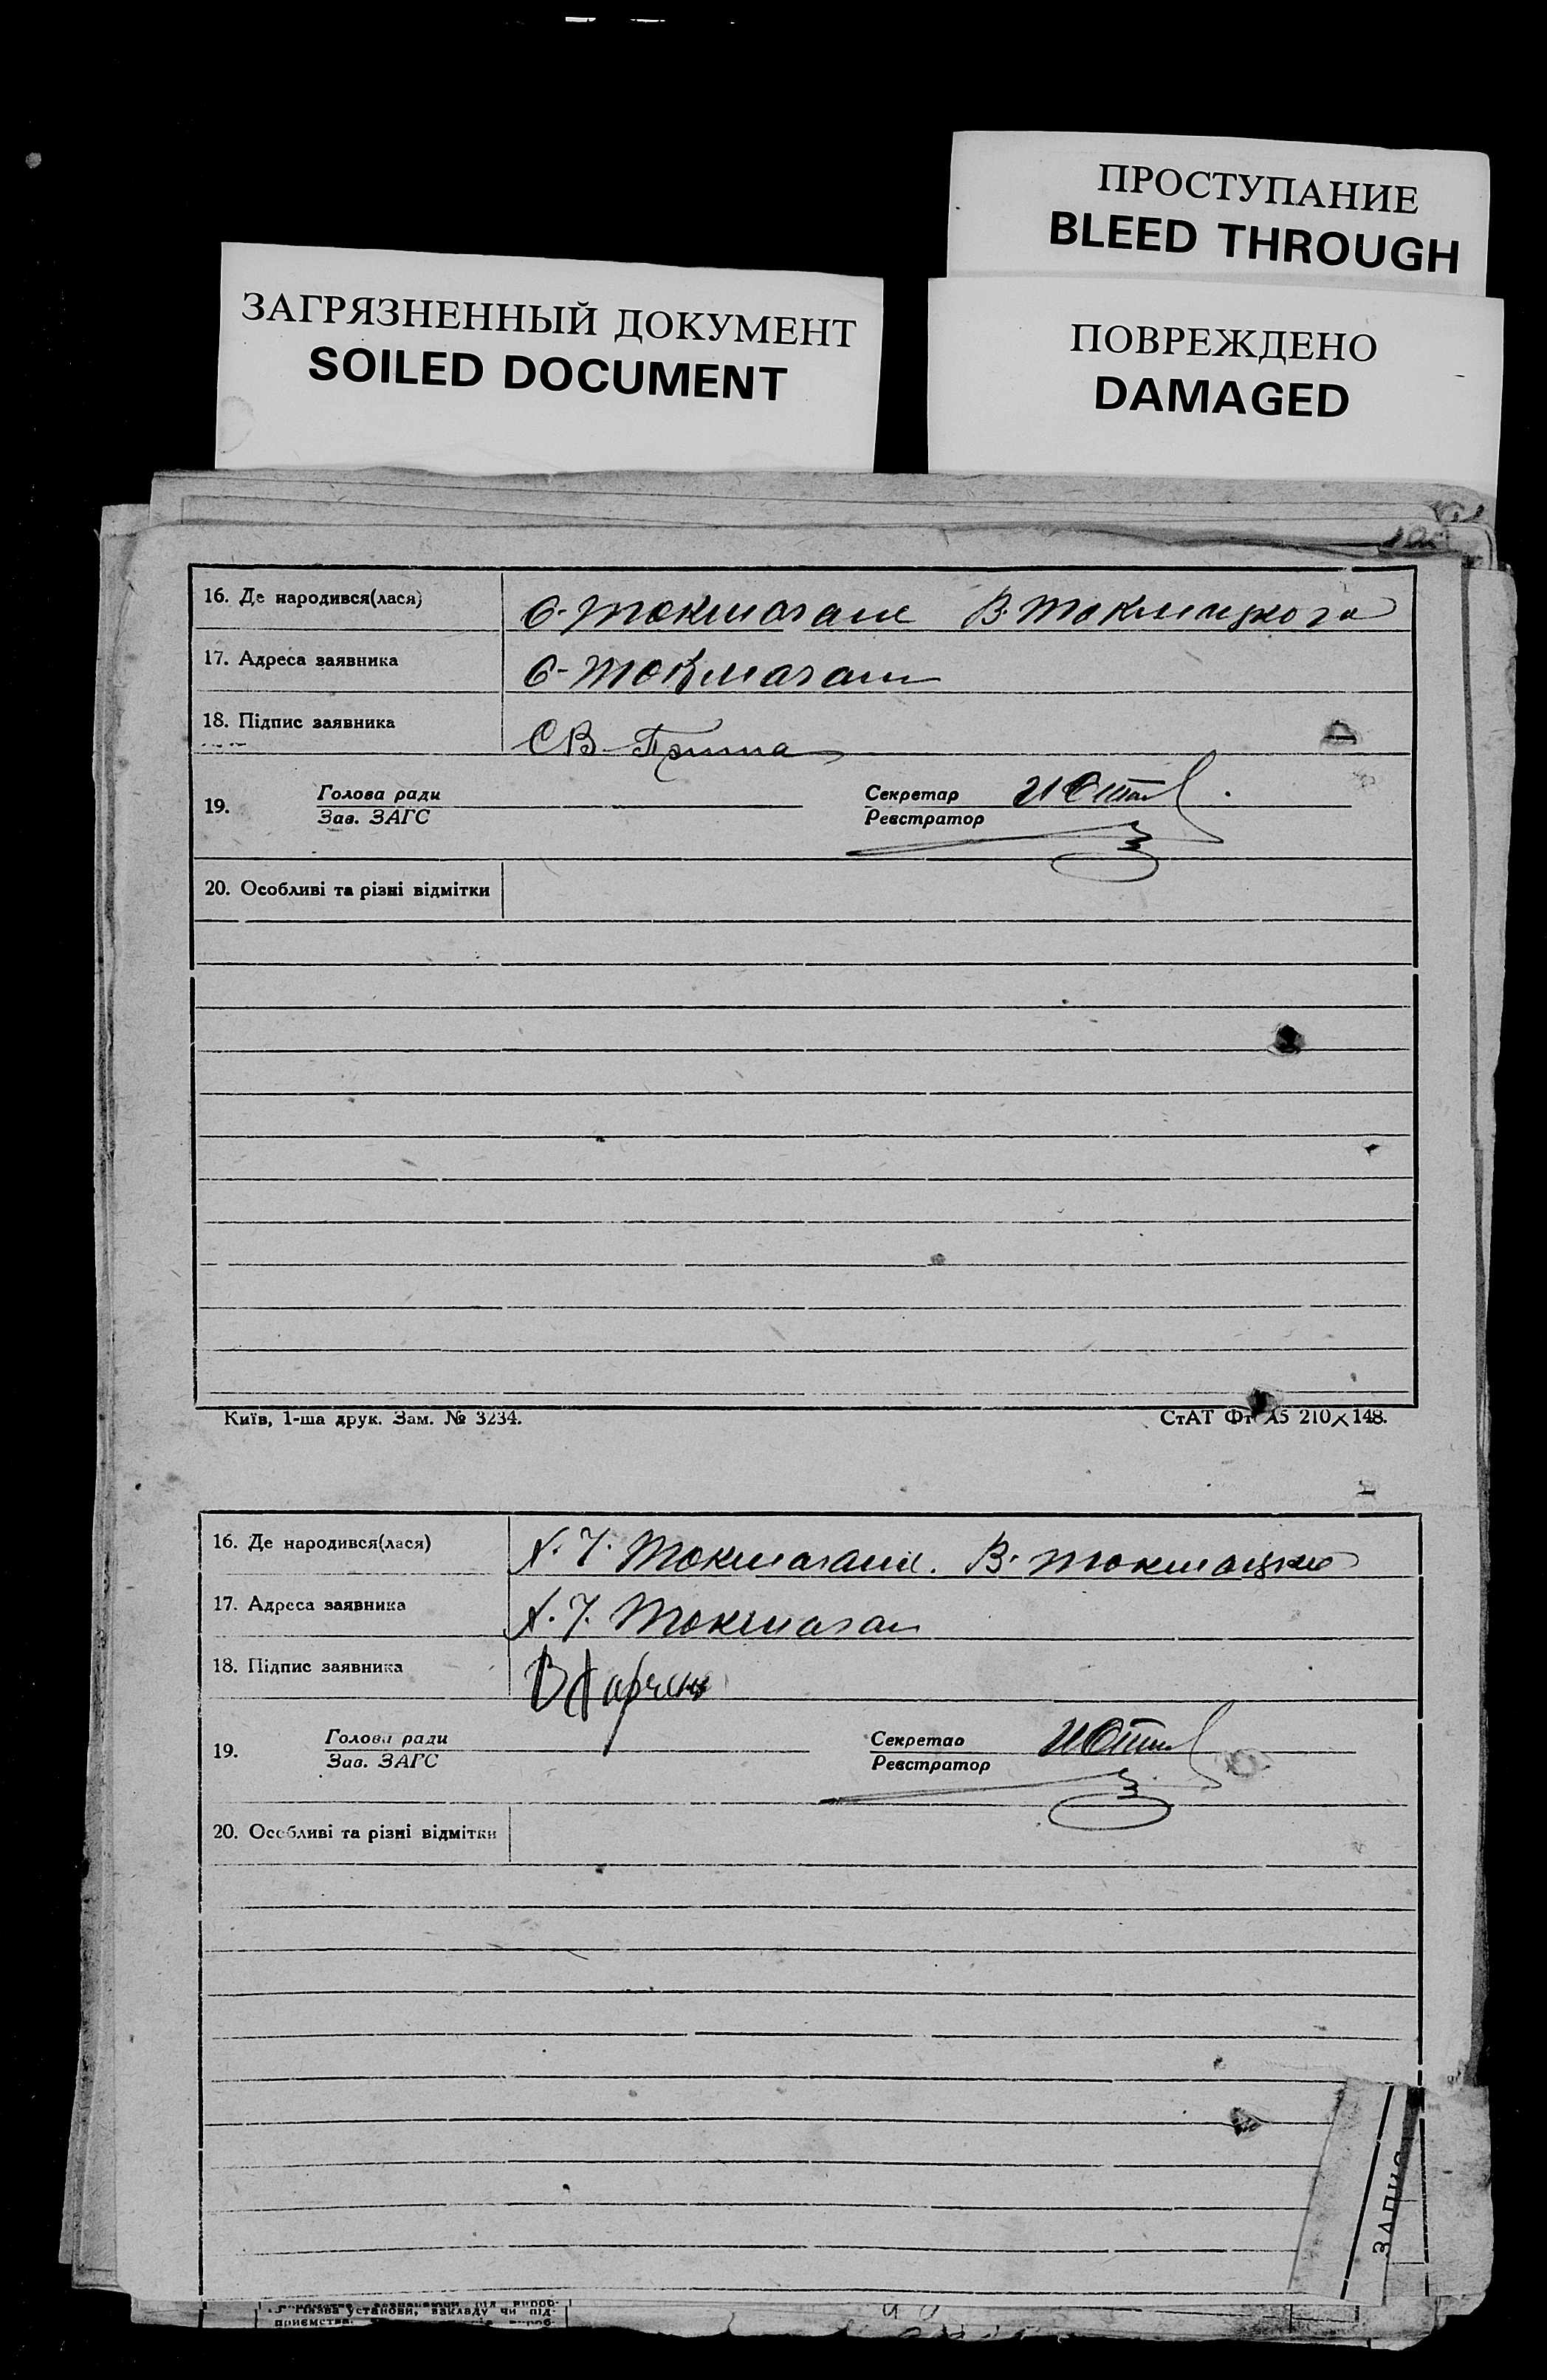 ПРОСТУПАНИЕ
BLEED THROUGH
ЗАГРЯЗНЕННЫЙ ДОКУМЕНТ
SOILED DOCUMENT
ПОВРЕЖДЕНО
DAMAGED
16. Де народився(лася) с. Токмачани В. Токмацкого
17. Адреса заявника с. Токмачан
18. Підпис заявника СВ
19. Голова ради Секретар
Зав. ЗАГС Реєстратор
20. Особливі та різні відмітки
Київ, 1-ша друк. Зам. № 3234. СтАТ Фт А5 210×148.
16. Де народився(лася) Токмачани. В. Токмацко
17. Адреса заявника Токмачан
18. Підпис заявника
19. Голова ради Секретар
Зав. ЗАГС Реєстратор
20. Особливі та різні відмітки
ЗАПИС
Назва установи, закладу чи під-
приємства